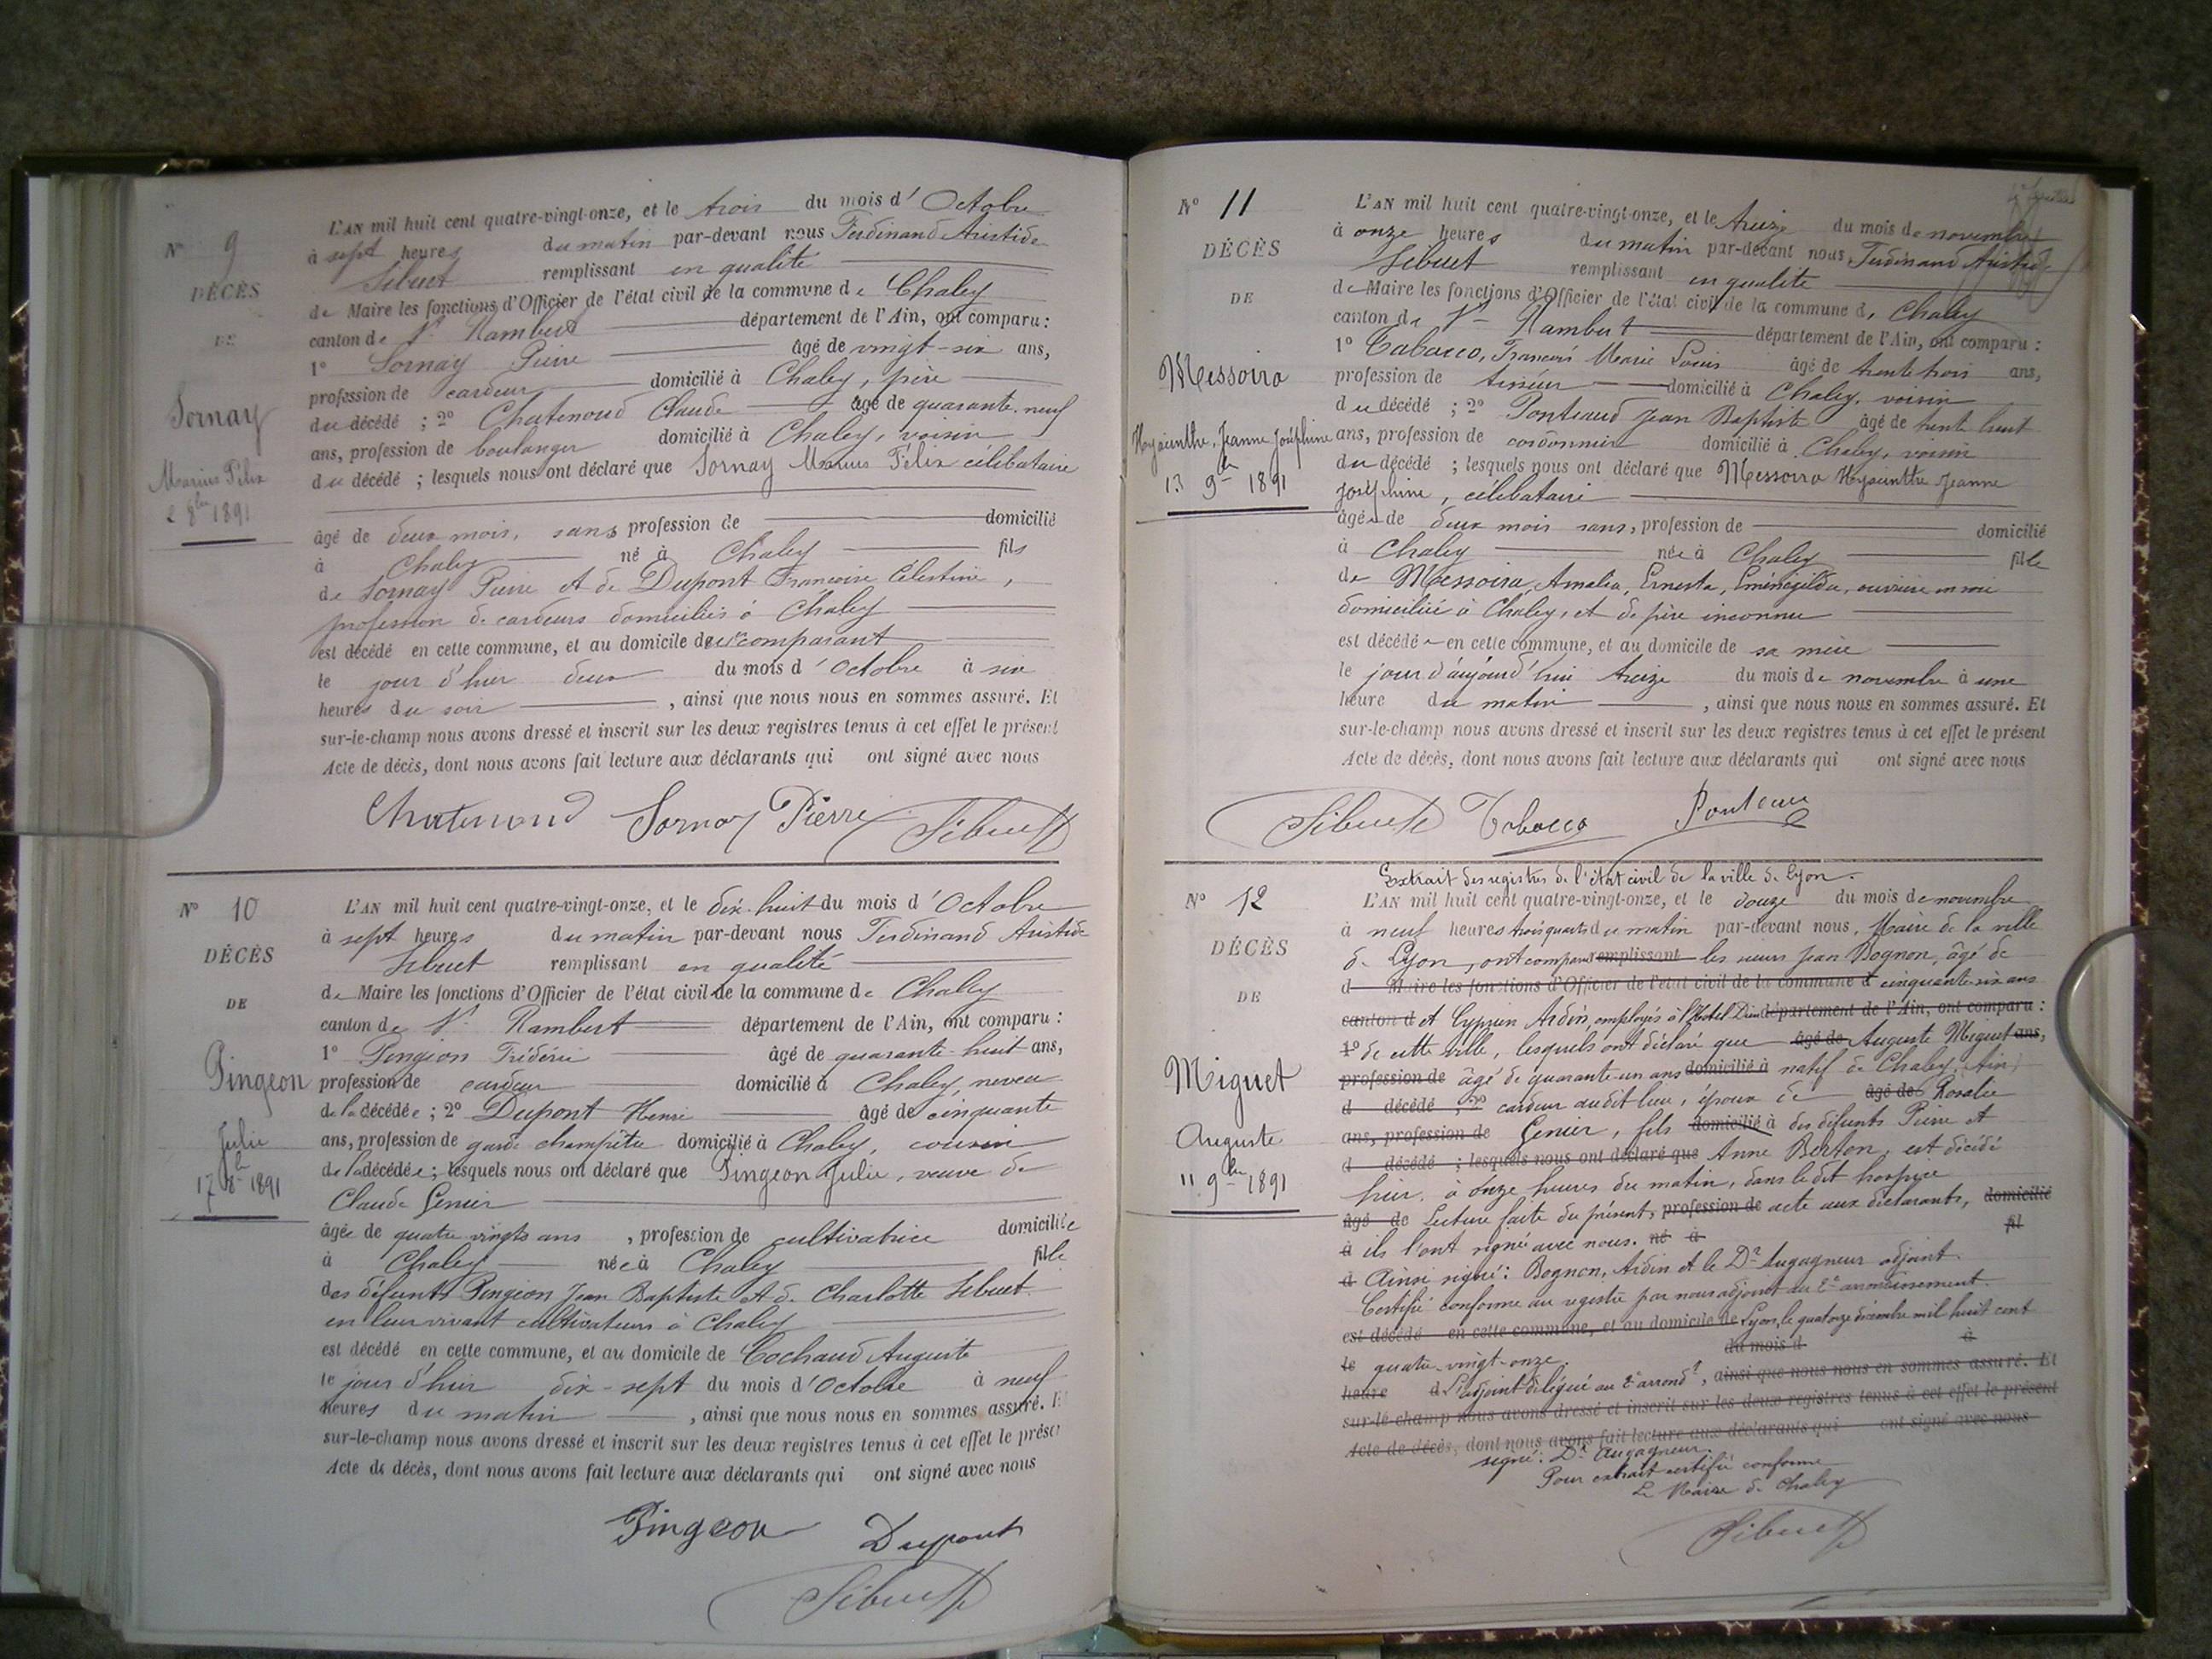 N° 9
DÉCÈS
DE
Sornay
Marius Félix
2 8bre 1891
L'AN mil huit cent quatre-vingt-onze, et le trois du mois d'Octobre
à sept heures du matin par-devant nous Ferdinand Aristide
Sibuet remplissant en qualité
de Maire les fonctions d'Officier de l'état civil de la commune de Chaley
canton de St Rambert département de l'Ain, ont comparu :
1° Sornay Pierre âgé de vingt-six ans,
profession de cardeur domicilié à Chaley, père
du décédé ; 2° Chatenoud Claude âgé de quarante-neuf
ans, profession de boulanger domicilié à Chaley, voisin
du décédé ; lesquels nous ont déclaré que Sornay Marius Félix célibataire
âgé de deux mois, sans profession de domicilié
à Chaley né à Chaley fils
de Sornay Pierre et de Dupont Françoise Célestine,
profession de cardeurs domiciliés à Chaley
est décédé en cette commune, et au domicile du 1er comparant
le jour d'hier deux du mois d'Octobre à six
heures du soir , ainsi que nous nous en sommes assuré. Et
sur-le-champ nous avons dressé et inscrit sur les deux registres tenus à cet effet le présent
Acte de décès, dont nous avons fait lecture aux déclarants qui ont signé avec nous
Chatenoud Sornay Pierre Sibuet
N° 10
DÉCÈS
DE
Pingeon
Julie
17 8bre 1891
L'AN mil huit cent quatre-vingt-onze, et le dix-huit du mois d'Octobre
à sept heures du matin par-devant nous Ferdinand Aristide
Sibuet remplissant en qualité
de Maire les fonctions d'Officier de l'état civil de la commune de Chaley
canton de St Rambert département de l'Ain, ont comparu :
1° Pingeon Frédéric âgé de quarante-huit ans,
profession de cardeur domicilié à Chaley, neveu
de la décédée ; 2° Dupont Henri âgé de cinquante
ans, profession de garde champêtre domicilié à Chaley, cousin
de la décédée ; lesquels nous ont déclaré que Pingeon Julie, veuve de
Claude Genier
âgée de quatre vingts ans , profession de cultivatrice domiciliée
à Chaley née à Chaley fille
des défunts Pingeon Jean Baptiste et de Charlotte Sibuet
en leur vivant cultivateurs à Chaley
est décédé en cette commune, et au domicile de Cochaud Auguste
le jour d'hier dix-sept du mois d'Octobre à neuf
heures du matin , ainsi que nous nous en sommes assuré. E
sur-le-champ nous avons dressé et inscrit sur les deux registres tenus à cet effet le prése
Acte de décès, dont nous avons fait lecture aux déclarants qui ont signé avec nous
Pingeon Dupont
Sibuet
N° 11
DÉCÈS
DE
Messoira
Hyacinthe, Jeanne Joséphine
13 9bre 1891
L'AN mil huit cent quatre-vingt-onze, et le treize du mois de novembre
à onze heures du matin par-devant nous Ferdinand Aristide
Sibuet remplissant en qualité
de Maire les fonctions d'Officier de l'état civil de la commune de Chaley
canton de St Rambert département de l'Ain, ont comparu :
1° Tabacco, François Marie Louis âgé de trente trois ans,
profession de tisseur domicilié à Chaley, voisin
du décédé ; 2° Ponteaud Jean Baptiste âgé de trente huit
ans, profession de cordonnier domicilié à Chaley, voisin
du décédé ; lesquels nous ont déclaré que Messoira Hyacinthe Jeanne
Joséphine, célibataire
âgée de deux mois sans, profession de domicilié
à Chaley née à Chaley fille
de Messoira, Amalia, Ernesta, Eménégilda, ouvrière en soie
domiciliée à Chaley, et de père inconnu
est décédé en cette commune, et au domicile de sa mère
le jour d'aujourd'hui treize du mois de novembre à une
heure du matin , ainsi que nous nous en sommes assuré. Et
sur-le-champ nous avons dressé et inscrit sur les deux registres tenus à cet effet le présent
Acte de décès, dont nous avons fait lecture aux déclarants qui ont signé avec nous
Sibuet Tabacco Ponteau
N° 12
DÉCÈS
DE
Miguet
Auguste
11 9bre 1891
Extrait des registres de l'état civil de la ville de Lyon.
L'AN mil huit cent quatre-vingt-onze, et le douze du mois de novembre
à neuf heures trois quarts du matin par-devant nous, Maire de la ville
de Lyon, ont comparu remplissant les sieurs Jean Bognon, âgé de
d Maire les fonctions d'Officier de l'état civil de la commune d cinquante-six ans
canton d et Cyprien Ardin, employés à l'Hôtel Dieu département de l'Ain, ont comparu :
1° de cette ville, lesquels ont déclaré que âgé de Auguste Miguet ans,
profession de âgé de quarante-un ans domicilié à natif de Chaley (Ain)
d décédé ; 2° cardeur audit lieu, époux de âgé de Rosalie
ans, profession de Genier, fils domicilié à des défunts Pierre et
d décédé ; lesquels nous ont déclaré que Anne Berton, est décédé
hier, à onze heures du matin, dans ledit hospice
âgé de Lecture faite du présent, profession de acte aux déclarants, domicilié
à ils l'ont signé avec nous. né à fil
d Ainsi signé : Bognon, Ardin et le Dr Augagneur adjoint
Certifié conforme au registre par nous adjoint au 2e arrondissement.
est décédé en cette commune, et au domicile de Lyon, le quatorze décembre mil huit cent
le quatre-vingt-onze. du mois d à
heure d L'adjoint délégué au 2e arrondt, ainsi que nous nous en sommes assuré. Et
sur-le-champ nous avons dressé et inscrit sur les deux registres tenus à cet effet le présent
Acte de décès, dont nous avons fait lecture aux déclarants qui ont signé avec nous
signé : Dr Augagneur.
Pour extrait certifié conforme
Le Maire de Chaley
Sibuet